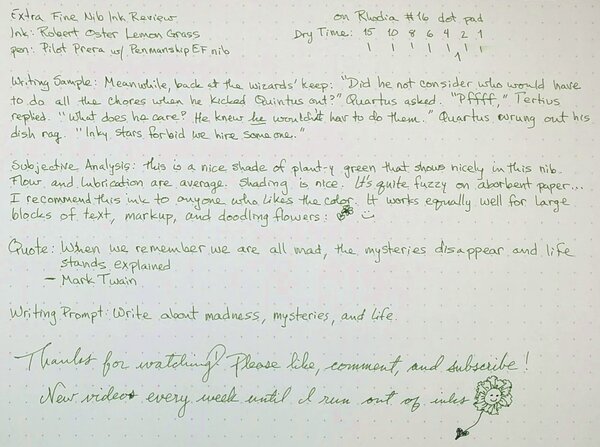 Extra Fine Nib Ink Review
on Rhodia #16 dot pad
Ink: Robert Oster Lemon Grass
Dry Time: 15 10 8 6 4 2 1
pen: Pilot Prera w/ Penmanship EF nib
Writing Sample: Meanwhile, back at the wizards' keep: "Did he not consider who would have
to do all the chores when he kicked Quintus out?" Quartus asked. "Pffff," Tertius
replied. "What does he care? He knew he wouldn't hav to do them." Quartus wrung out his
dish rag. "Inky stars forbid we hire someone."
Subjective Analysis: This is a nice shade of plant-y green that shows nicely in this nib.
Flow and lubrication are average. Shading is nice. It's quite fuzzy on absorbent paper...
I recommend this ink to anyone who likes the color. It works equally well for large
blocks of text, markup, and doodling flowers:
Quote: When we remember we are all mad, the mysteries disappear and life
stands explained
- Mark Twain
Writing Prompt: Write about madness, mysteries, and life.
Thanks for watching! Please like, comment, and subscribe!
New videos every week until I run out of inks